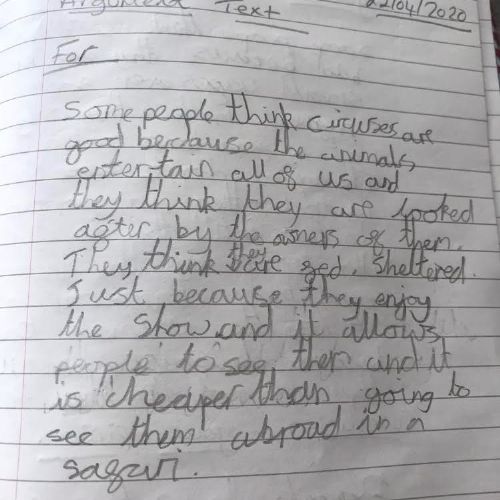 Argument Text 22/04/2020
For
Some people think circuses are
good because the animals
entertain all of us and
they think they are looked
after by the owners of them.
They think they are fed, sheltered.
Just because they enjoy
the show and it allows
people to see then and it
is cheaper than going to
see them abroad in a
safari.